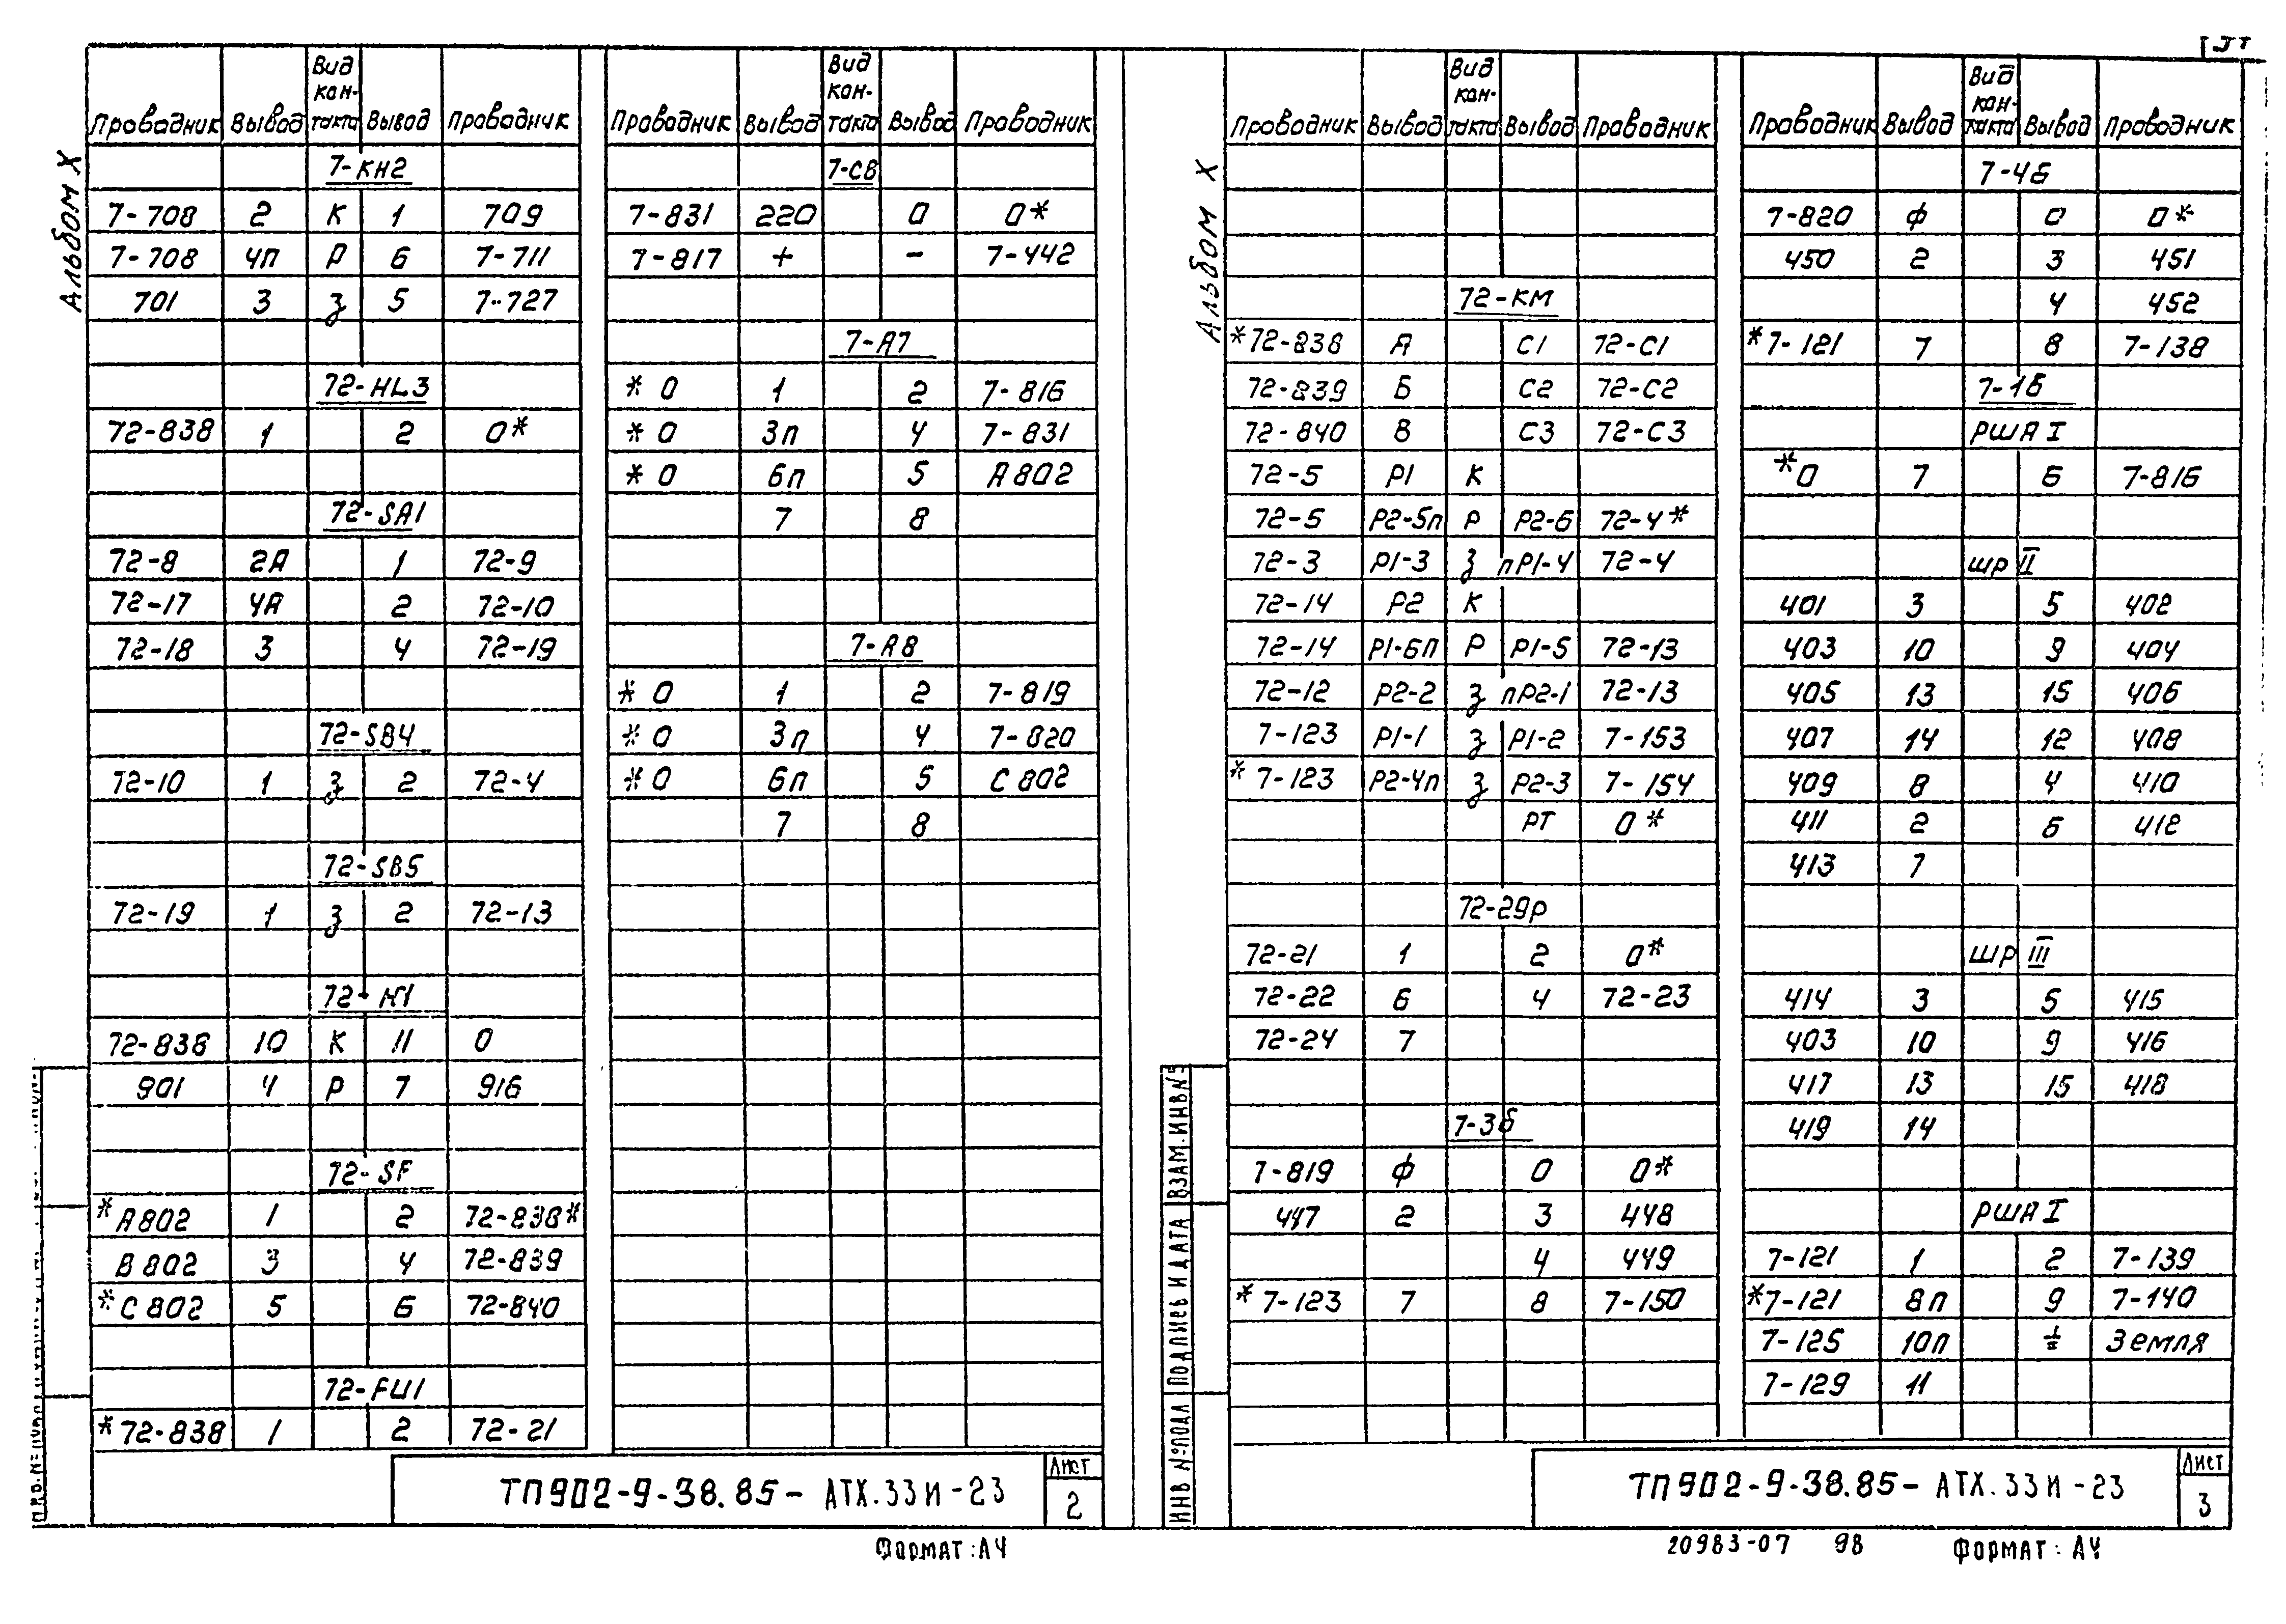 Альбом X
Проводник Вывод Вид кон-такта Вывод Проводник
7-КН2
7-708 2 К 1 709
7-708 4п Р 6 7-711
701 3 З 5 7-727
72-HL3
72-838 1 2 0*
72-SA1
72-8 2А 1 72-9
72-17 4А 2 72-10
72-18 3 4 72-19
72-SB4
72-10 1 З 2 72-4
72-SB5
72-19 1 З 2 72-13
72-К1
72-838 10 К 11 0
901 4 Р 7 916
72-SF
*А802 1 2 72-838*
В802 3 4 72-839
*С802 5 6 72-840
72-FU1
*72-838 1 2 72-21
Проводник Вывод Вид кон-такта Вывод Проводник
7-СВ
7-831 220 0 0*
7-817 + - 7-442
7-А7
*0 1 2 7-816
*0 3п 4 7-831
*0 6п 5 А802
7 8
7-А8
*0 1 2 7-819
*0 3п 4 7-820
*0 6п 5 С802
7 8
ТП902-9-38.85-АТХ.33И-23
Лист
2
Формат:А4
Альбом X
Проводник Вывод Вид кон-такта Вывод Проводник
72-КМ
*72-838 А С1 72-С1
72-839 Б С2 72-С2
72-840 В С3 72-С3
72-5 Р1 К
72-5 Р2-5п Р Р2-6 72-4*
72-3 Р1-3 З пР1-4 72-4
72-14 Р2 К
72-14 Р1-6п Р Р1-5 72-13
72-12 Р2-2 З пР2-1 72-13
7-123 Р1-1 З Р1-2 7-153
*7-123 Р2-4п З Р2-3 7-154
РТ 0*
72-29р
72-21 1 2 0*
72-22 6 4 72-23
72-24 7
7-3б
7-819 Ф 0 0*
447 2 3 448
4 449
*7-123 7 8 7-150
Проводник Вывод Вид кон-такта Вывод Проводник
7-4б
7-820 Ф 0 0*
450 2 3 451
4 452
*7-121 7 8 7-138
7-1б
РША I
*0 7 6 7-816
ШР II
401 3 5 402
403 10 9 404
405 13 15 406
407 14 12 408
409 8 4 410
411 2 6 412
413 7
ШР III
414 3 5 415
403 10 9 416
417 13 15 418
419 14
РША I
7-121 1 2 7-139
*7-121 8п 9 7-140
7-125 10п ⏚ Земля
7-129 11
ИНВ №ПОДЛ ПОДПИСЬ И ДАТА ВЗАМ.ИНВ№
ТП902-9-38.85-АТХ.33И-23
Лист
3
20983-07 98
Формат: А4